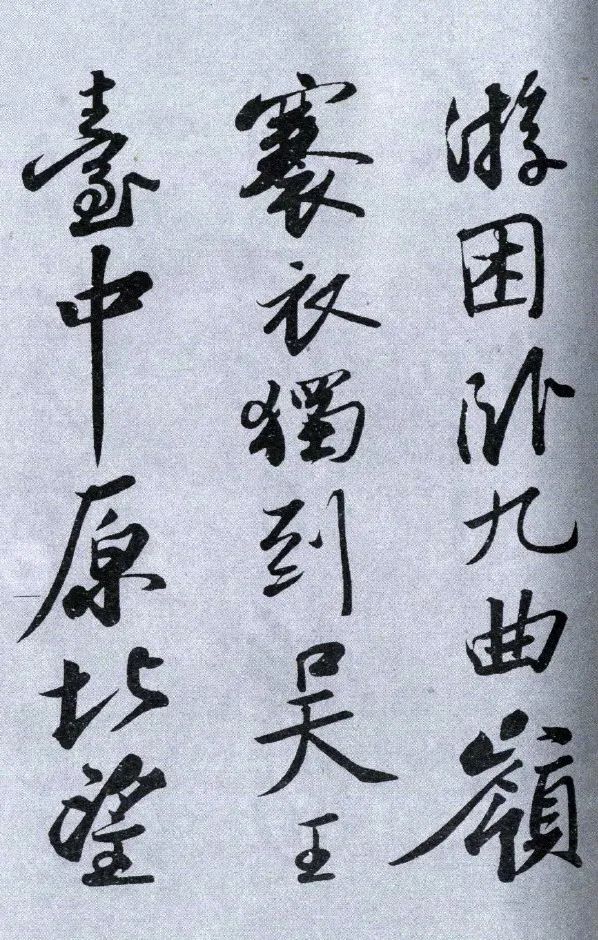 游困卧九曲嶺
褰衣獨到吳王
臺中原北望